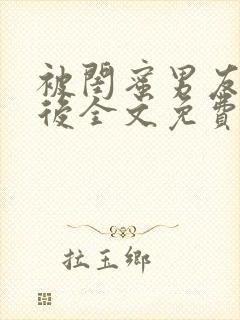 被閨蜜男友
後全文免費
拉玉鄉